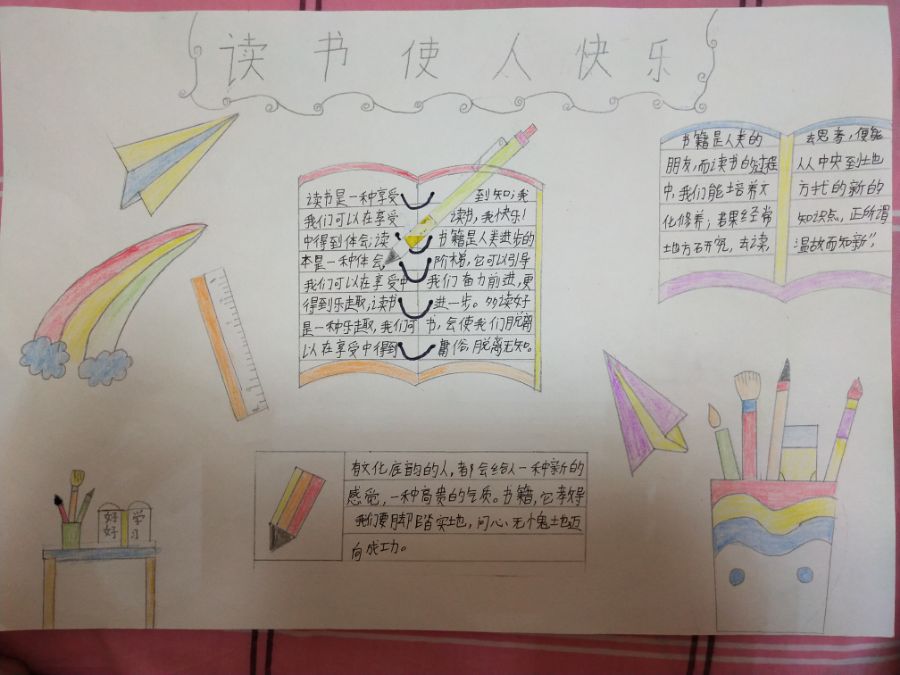 读书使人快乐
读书是一种享受
我们可以在享受
中得到体会;读
本是一种体会,
我们可以在享受中
得到乐趣;读书
是一种乐趣,我们可
以在享受中得到
到知;我
读书,我快乐!
书籍是人类进步的
阶梯,它可以引导
我们奋力前进,更
进一步。多读好
书,会使我们脱离
庸俗,脱离无知。
书籍是人类的
朋友,而读书的过程
中,我们能培养文
化修养;若果经常
地方石开究,去读,
去思考,便能
从中央到土也
方找的新的
知识点,正所谓
温故而知新”,
有文化底韵的人,都会给人一种新的
感觉,一种高贵的气质。书籍,它孝导
我们要脚踏实地,问心无愧土也迈
向成功。
好好
学习